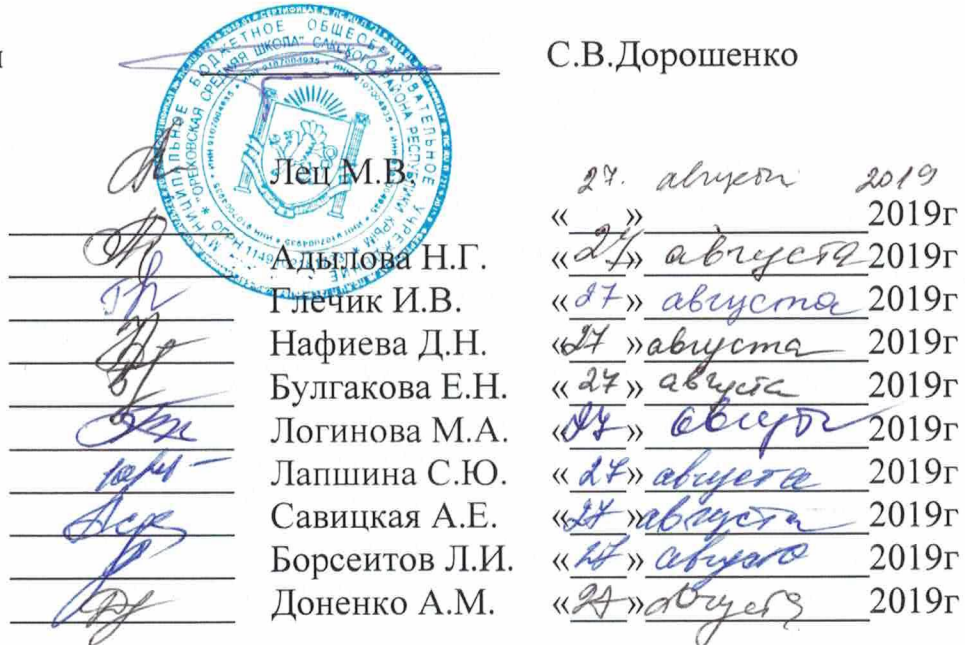 С.В.Дорошенко
МУНИЦИПАЛЬНОЕ БЮДЖЕТНОЕ ОБЩЕОБРАЗОВАТЕЛЬНОЕ УЧРЕЖДЕНИЕ
"ОРЕХОВСКАЯ СРЕДНЯЯ ШКОЛА" САКСКОГО РАЙОНА РЕСПУБЛИКИ КРЫМ
ИНН 9107004935
Лец М.В. 27. августа 2019
« » 2019г
Адылова Н.Г. «27» августа 2019г
Глечик И.В. «27» августа 2019г
Нафиева Д.Н. «27» августа 2019г
Булгакова Е.Н. «27» августа 2019г
Логинова М.А. «27» августа 2019г
Лапшина С.Ю. «27» августа 2019г
Савицкая А.Е. «27» августа 2019г
Борсеитов Л.И. «27» августа 2019г
Доненко А.М. «27» августа 2019г